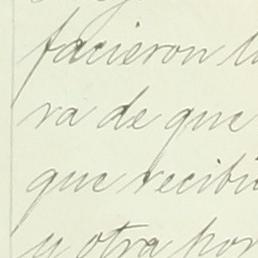 facieron l
ra de que
que recibi
y otra por